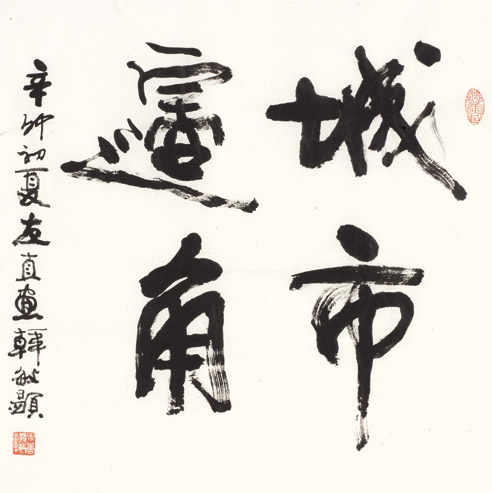 城市
邊角
辛卯初夏友直畫韓敏題